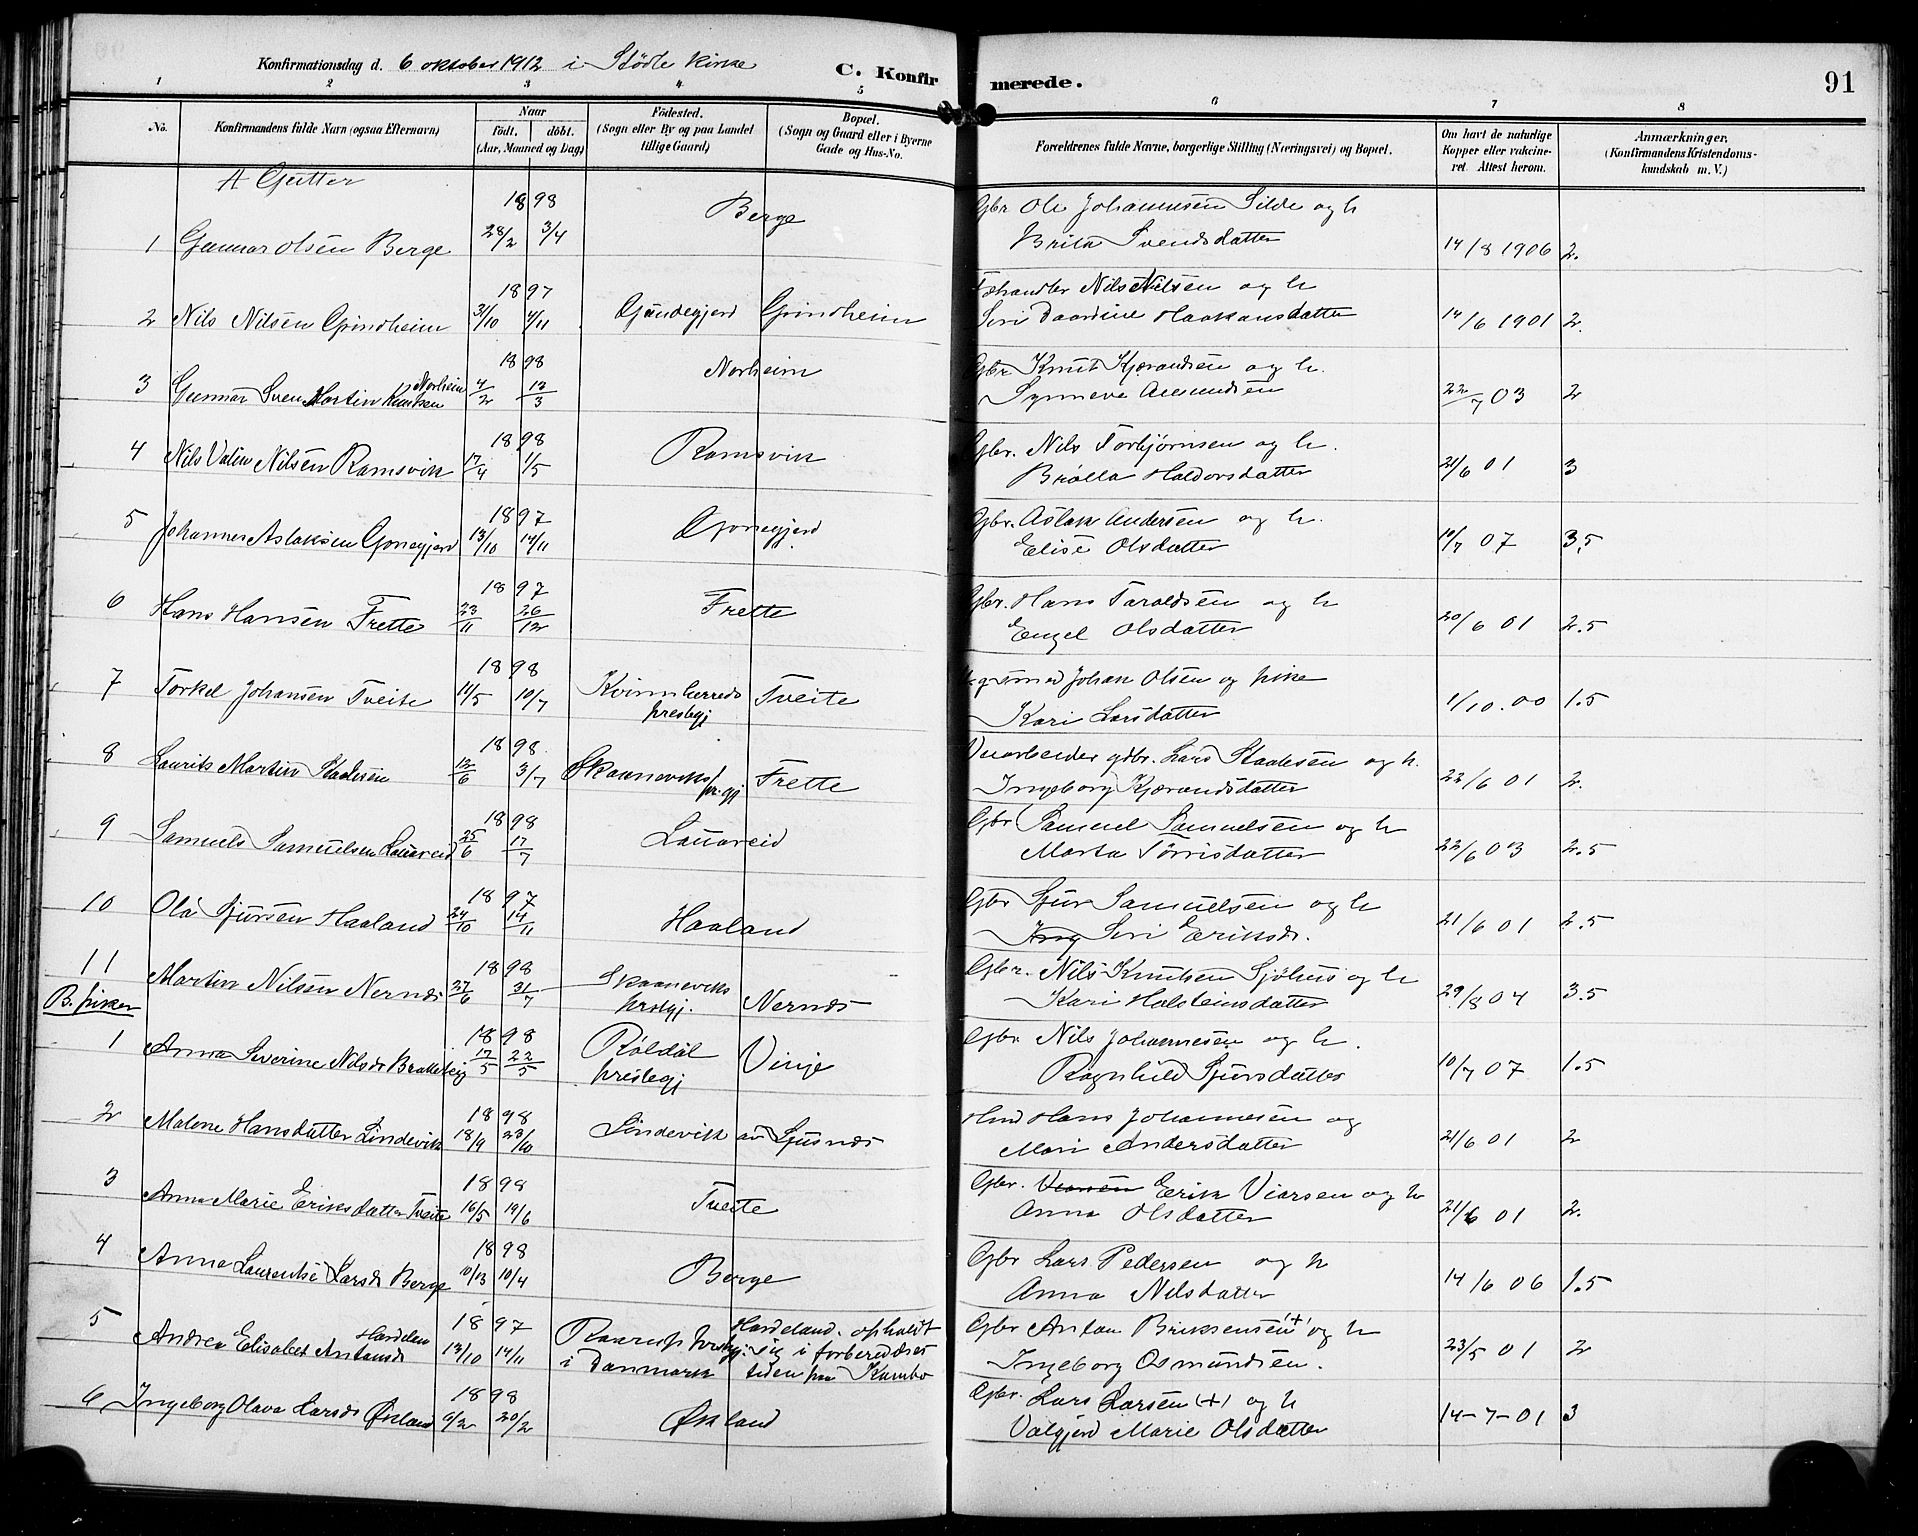 Konfirmationsdag d. 6 oktober 1912 i Stødle kirke
C. Konfirmerede.
91
1 2 3 4 5 6 7 8
No.
Konfirmandens fulde Navn (ogsaa Efternavn)
Naar
født. døbt.
(Aar, Maaned og Dag)
Fødested.
(Sogn eller By og paa Landet
tillige Gaard)
Bopæl.
(Sogn og Gaard eller i Byerne
Gade og Hus-No.
Forældrenes fulde Navne, borgerlige Stilling (Næringsvei) og Bopæl.
Om havt de naturlige
Kopper eller vakcine-
ret. Attest herom.
Anmærkninger.
(Konfirmandens Kristendoms-
kundskab m. V.)
A Gutter
1 Gunnar Olsen Berge 1898 28/2 3/4 Berge
Gbr Ole Johannesen Silde og h
Brita Svendsdatter 14/8 1906 2.
2 Nils Nilsen Grindheim 1897 31/10 4/11 Grindheim
Fæhandler Nils Nilsen og h
Siri Haakansdatter 14/6 1901 2.
3 Gunnar Sven Martin Knutsen Norheim 1898 4/2 13/3 Norheim
Gbr Knut Kjærandsen og h.
Synneve Aamundsen 22/7 03 2
4 Nils Nilsen Ramsvik 1898 17/4 1/5 Ramsvik
Gbr. Nils Torbjørnsen og h.
Haldorsdatter 21/6 01 3
5 Johannes Aslaksen 1897 13/10 14/11
Gbr. Aslak Andersen og h.
Elise Olsdatter 10/7 07 3.5
6 Hans Hansen Frette 1897 23/11 26/12 Frette
Gbr. Hans Taraldsen og h
Engel Olsdatter 20/6 01 2.5
7 Torkel Johansen Tveite 1898 11/5 10/7 Kvinnherreds
prestegj Tveite
Johan Olsen og pike
Kari Larsdatter 1/10.00 1.5
8 Laurits Martin Stadesen 1898 12/6 3/7 Skaaneviks
pr.gj Frette
gdbr. Lars Staalesen og h.
Ingeborg Kjærandsdatter 22/6 01 2.
9 Samuels Samuelsen Lauareid 1898 25/6 17/7 Lauareid
Gbr Samuel Samuelsen og h
Marta Tørrisdatter 22/6 03 2.5
10 Ola Sjursen Haaland 1897 24/10 14/11 Haaland
Gbr Sjur Samuelsen og h
Ing Siri Eriksdr. 21/6 01 2.5
11 Martin Nilsen Nernes 1898 27/6 31/7 Skaaneviks
prestgj. Nernes
Gbr. Nils Knutsen Sjøhus og h
Kari Halsteinsdatter 29/8 04 3.5
B. piker
1 Anna Severine Nilsdr Bratteteig 1898 17/5 22/5 Røldal
prestegj Vinje
Gbr Nils Johannesen og h.
Ragnhild Sjursdatter 10/7 07 1.5
2 Malene Hansdatter Lindevik 1898 18/9 23/10 Lindevik av Sjusnes
Hmd Hans Johannesen og
Mari Andersdatter 21/6 01 2
3 Anna Marie Eriksdatter Tveite 1898 16/5 19/6 Tveite
Gbr. Erik Viarsen og h
Anna Olsdatter 21/6 01 2.
4 Anna Laurentse Larsdr Berge 1898 10/13 10/4 Berge
Gbr Lars Pedersen og h
Anna Nilsdatter 14/6 06 1.5
5 Andrea Elisabet Antansdr 1897 13/10 14/11
i Danmark
opholdt
sig i forberedelses
tiden paa Kambo
Gbr Antan Eriksensen (+) og h
Ingeborg Osmundsen. 23/5 01 2
6 Ingeborg Olava Larsdr Øksland 1898 9/2 20/2 Øksland
Gbr. Lars Larsen (+) og h
Valgjerd Marie Olsdatter 14-7-01 3